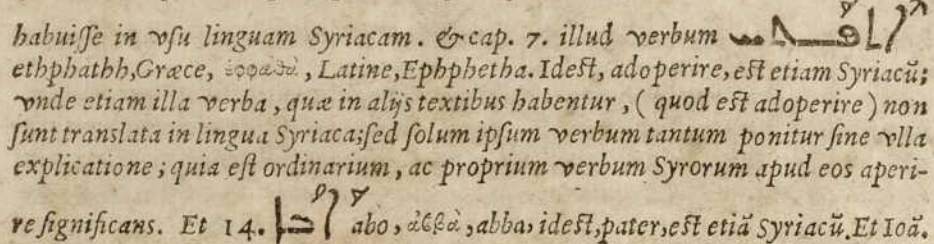 habuisse in vsu linguam Syriacam. & cap. 7. illud verbum ܐܬܦܬܚ
ethphathh, Græce, ἐφφαθὰ, Latine, Ephphetha. Idest, adoperire, est etiam Syriacũ;
vnde etiam illa verba, quæ in alijs textibus habentur, (quod est adoperire) non
sunt translata in lingua Syriaca; sed solum ipsum verbum tantum ponitur sine vlla
explicatione; quia est ordinarium, ac proprium verbum Syrorum apud eos aperi-
re significans. Et 14. ܐܒܐ abo, ἀββᾶ, abba, idest, pater, est etiã Syriacũ. Et Ioã.